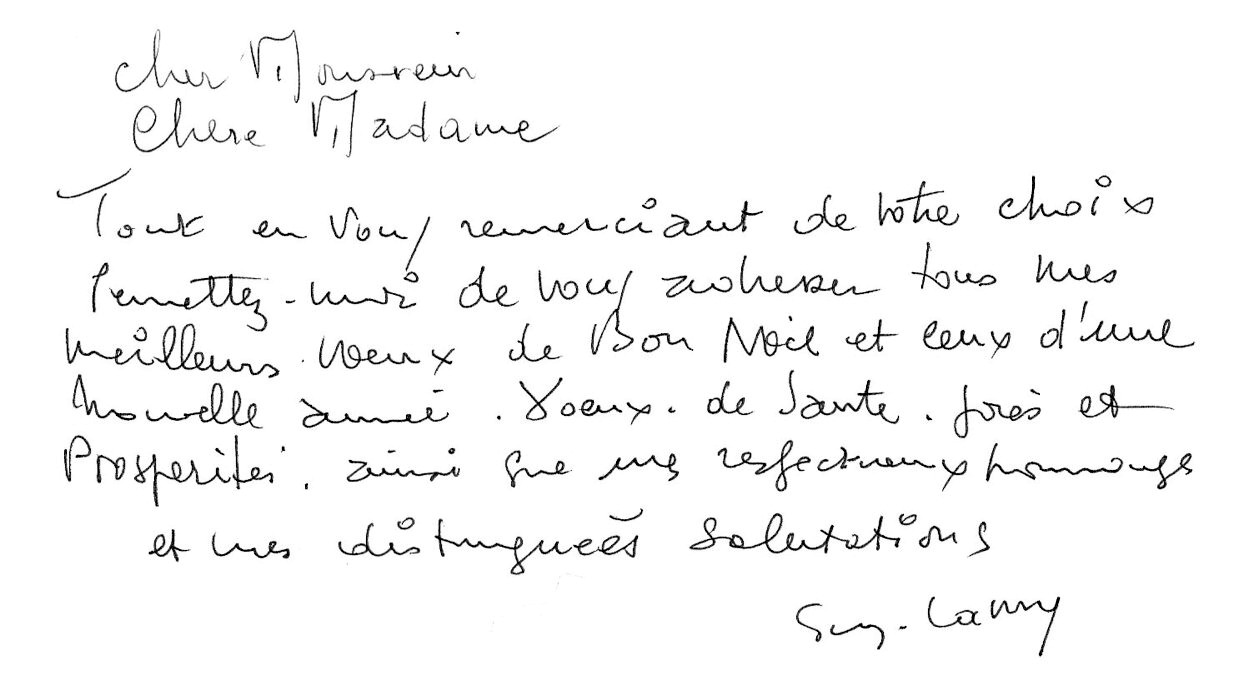 cher Monsieur
Chere Madame
Tout en vous remerciant de votre choix
Permettez-moi de vous adresser tous mes
meilleurs voeux de Bon Noël et ceux d'une
nouvelle année. Voeux. de Santé. et
Prosperités. ainsi que mes respectueux hommages
et mes distinguées salutations
Guy.